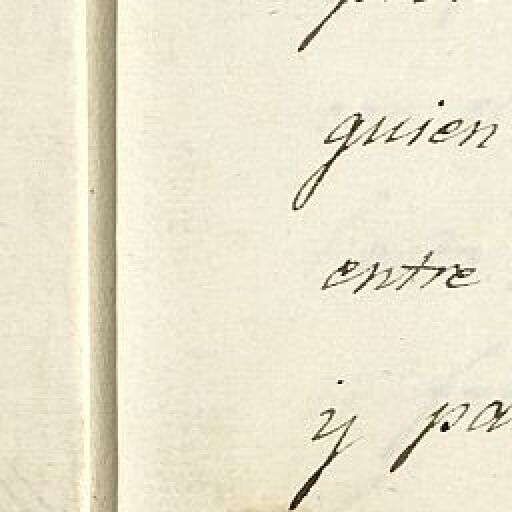 guien
entre
y pa